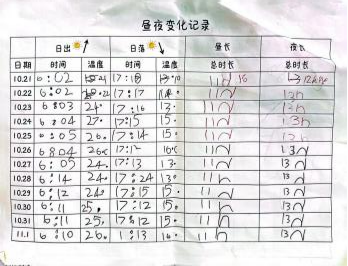 昼夜变化记录
日出 日落 昼长 夜长
日期 时间 温度 时间 温度 总时长 总时长
10.21 6:02 17:18
10.22 6:02 17:17 11h 13h
10.23 6:03 24° 17:16 13° 11h
10.24 6:04 27° 17:15 15° 11h 13h
10.25 6:05 26° 17:14 15° 11h 13h
10.26 6:04 26° 17:12 16° 11h 13h
10.27 6:05 24° 17:13 13° 11h 13h
10.28 6:14 24° 17:24 13° 11h 13h
10.29 6:12 24° 17:15 15° 11h 13h
10.30 6:11 25° 17:12 15° 11h 13h
10.31 6:11 25° 17:12 15° 11h 13h
11.1 6:10 26° 16° 11h 13h